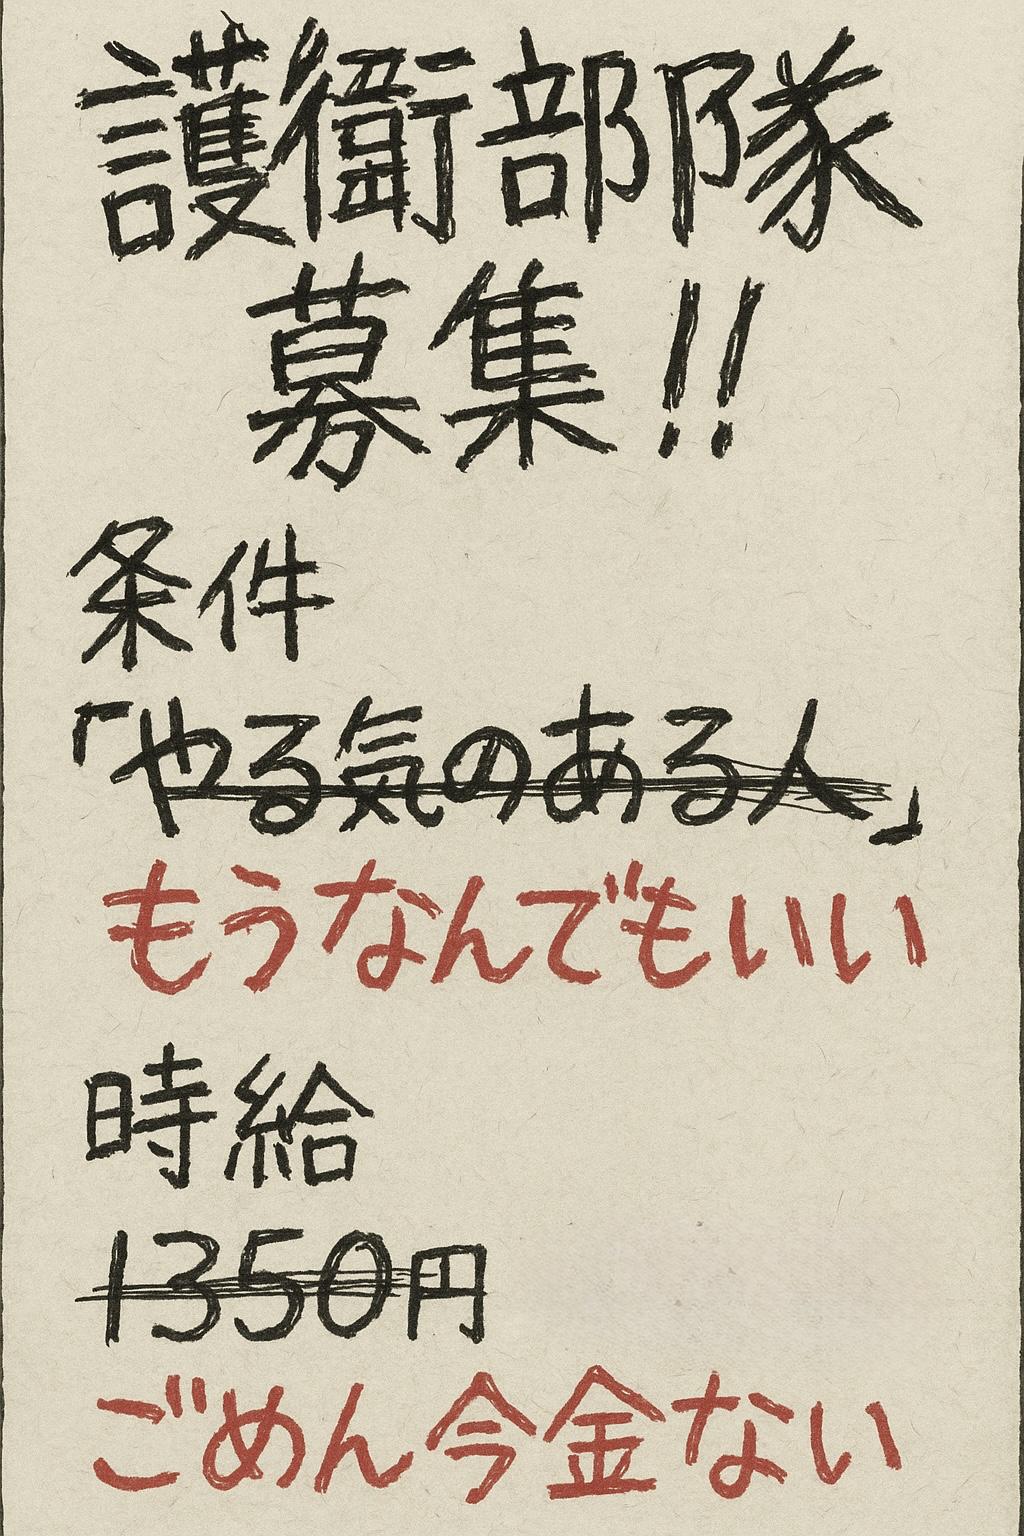 護衛部隊
募集!!
条件
「やる気のある人」
もうなんでもいい
時給
1350円
ごめん今金ない